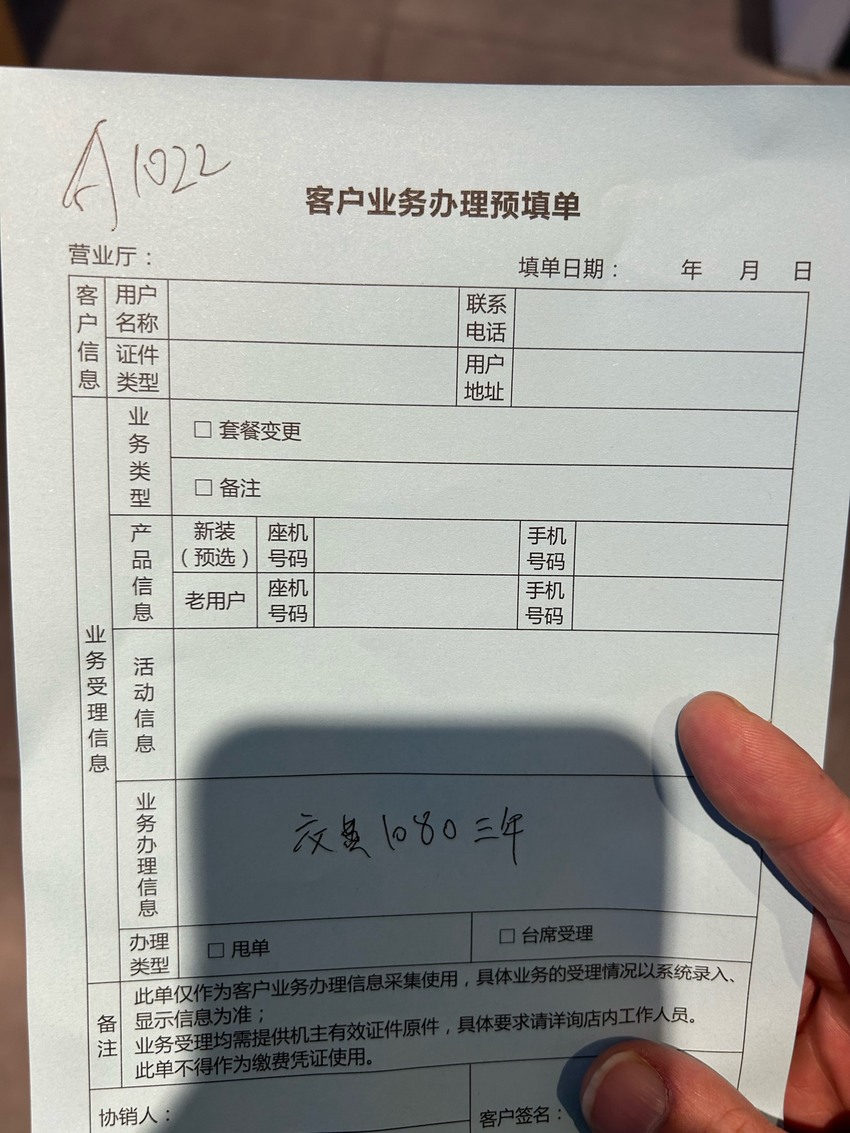 A1022
客户业务办理预填单
营业厅：
填单日期： 年 月 日
客户信息
用户名称
联系电话
证件类型
用户地址
业务受理信息
业务类型
□ 套餐变更
□ 备注
产品信息
新装（预选）
座机号码
手机号码
老用户
座机号码
手机号码
活动信息
业务办理信息
1080 三年
办理类型
□ 甩单
□ 台席受理
备注
此单仅作为客户业务办理信息采集使用，具体业务的受理情况以系统录入、
显示信息为准；
业务受理均需提供机主有效证件原件，具体要求请详询店内工作人员。
此单不得作为缴费凭证使用。
协销人：
客户签名：